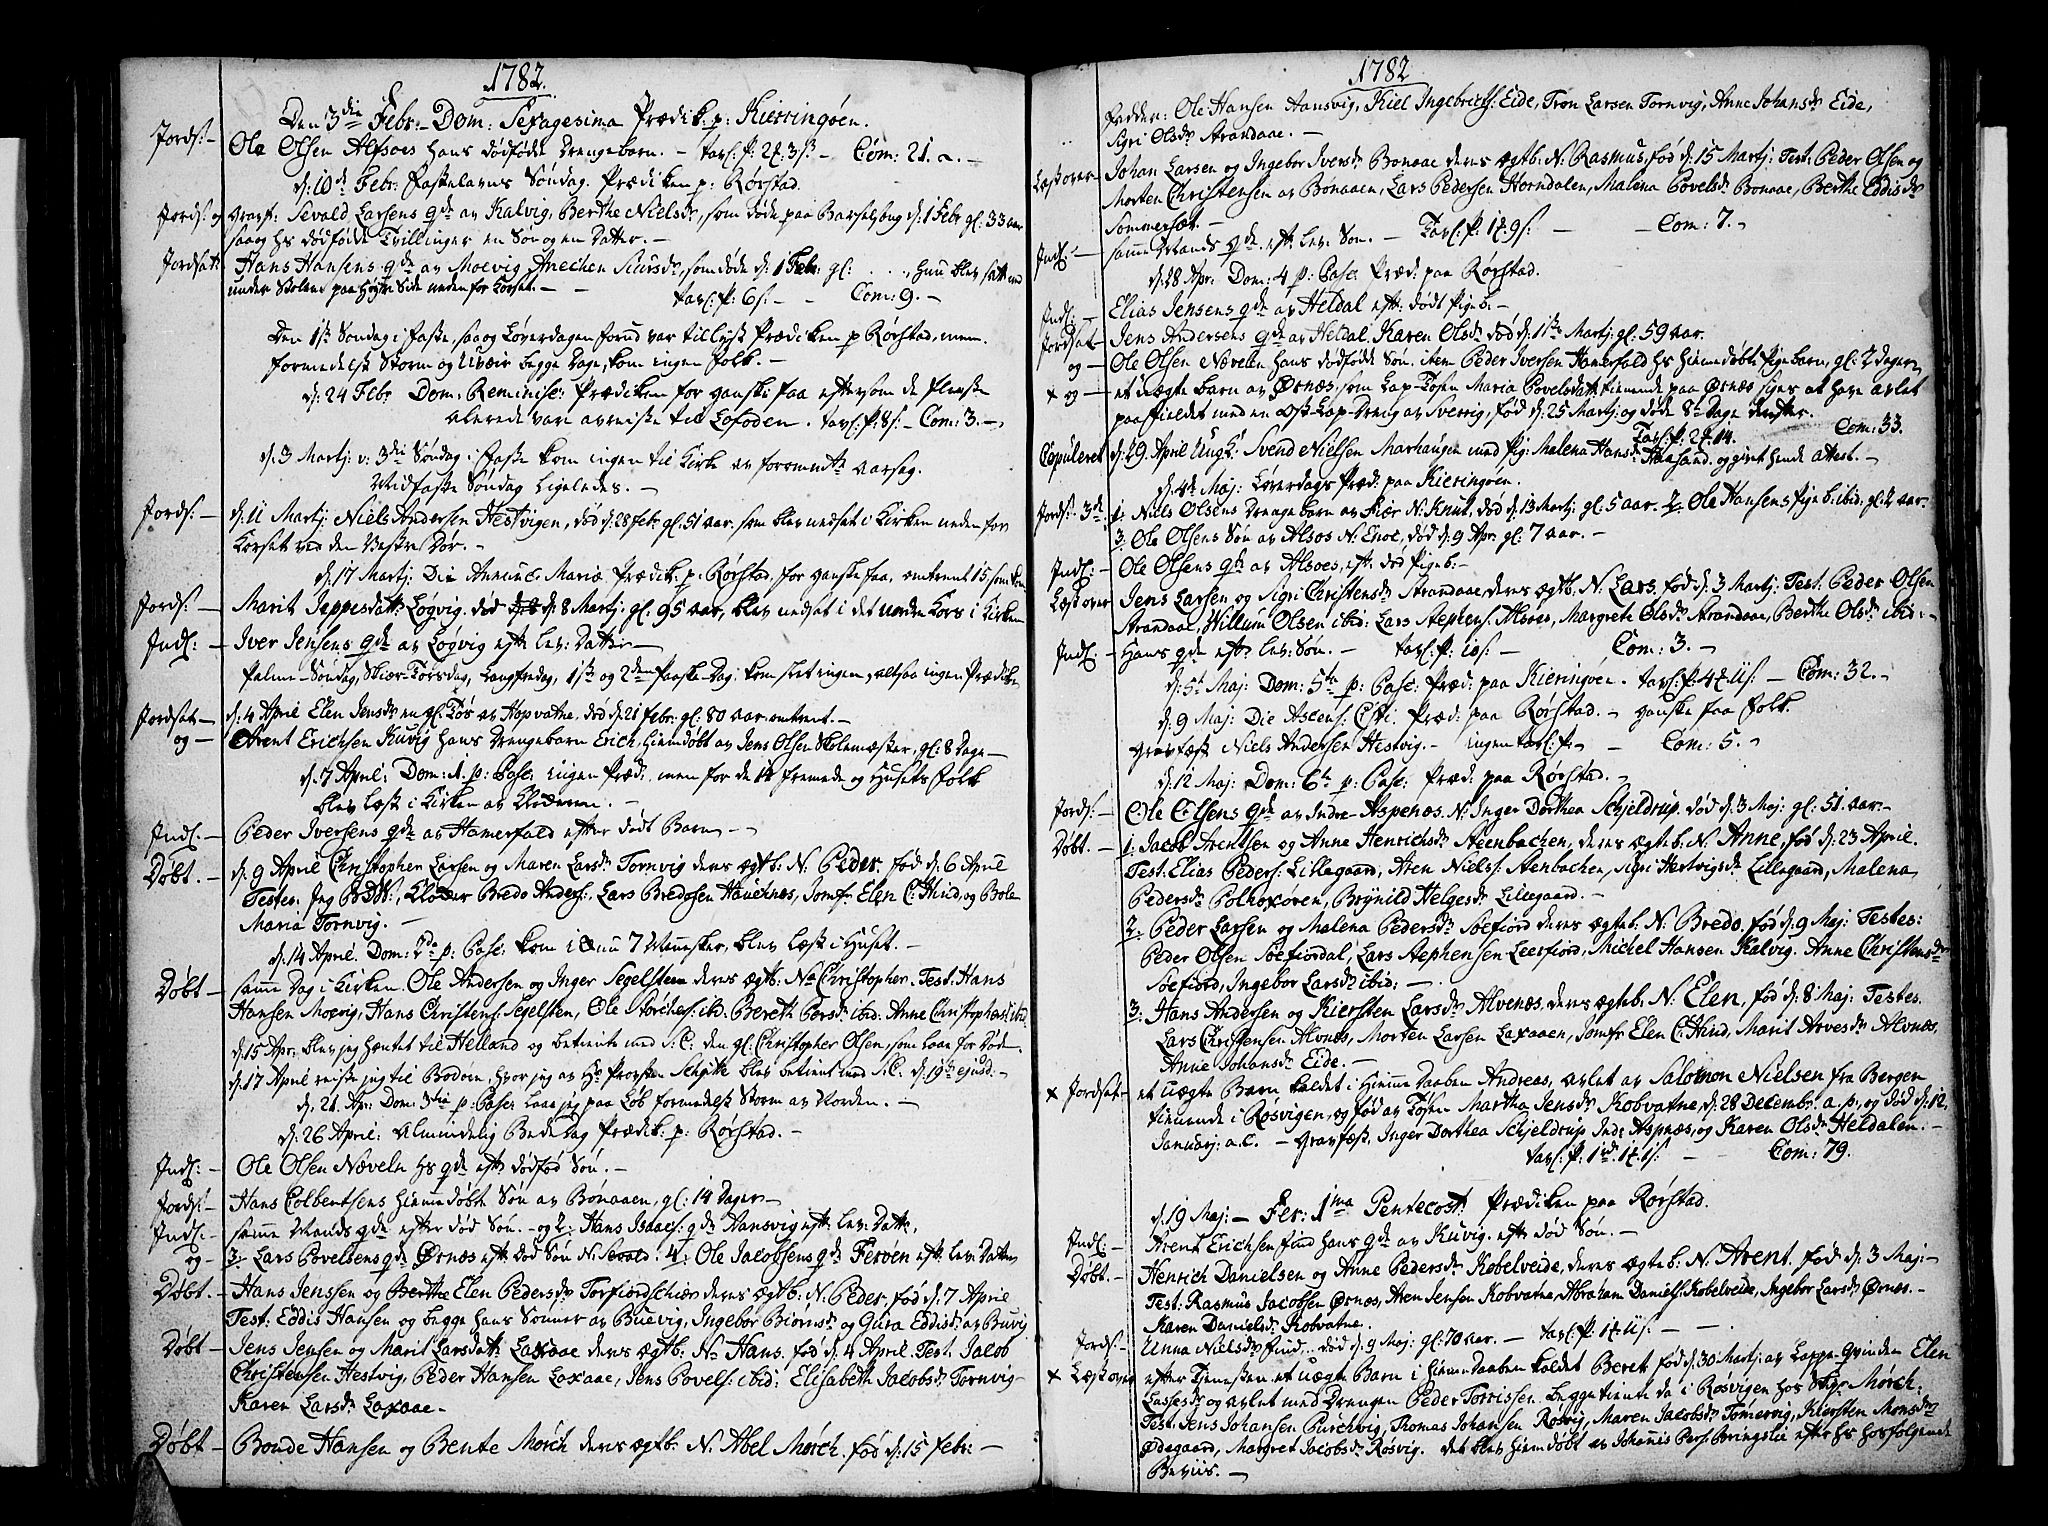 1782.
Den 3die Febr: Dom: Sexagesima Prædik: p: Kierringøen.
Jords: – Ole Olsen Alsoes hans dødfødde Drengebarn. – Tavl: P: 2 3 s – Com: 21. –
d: 10d Febr: Fastelavns Søndag. Prædiken p: Rørstad.
Jords: og Gravf: Sevald Larsens qde av Kalvig, Berthe Nielsdr, som døde paa Barselseng d: 1 Febr gl: 33 aar
saa og hs dødfødde Tvillinger en Søn og en Datter. –
Jordsat: Hans Hansens qde av Moevig Anechen Siursdr, som døde d: 1 Febr: gl: . . . , hun blev satt ned
under Stolene paa Høyre Side neden for Korset. – – Tavl: P: 6 s: – – Com: 9. –
Den 1ste Søndag i Faste, saa og Løverdagen forud var tillyst Prædiken p Rørstad, men
formedelst Storm og Uveir begge Dage, kom ingen Folk. –
d: 24 Febr Dom: Reminisc: Prædiken for ganske faa eftersom de fleeste
alerede vare avreiste til Lofoden. Tavl: P: 8 s: – Com: 3. –
d: 3 Martj v: 3die Søndag i Faste kom ingen til Kirke av foromte aarsag.
Midfaste Søndag ligeledes. –
Jords: – d: 11 Martj Niels Andersen Hestvigen, død d: 28 Febr: gl: 51 aar, som blev nedsat i Kirken neden for
Korset ved den Vestre Dør. –
d: 17 Martj: Die Annunc. Mariæ Prædik: p: Rørstad, for ganske faa, omtrent 15, som kom
Jords: – Marit Jeppesdatt: Løgvig, død d: 8 Martj: gl: 95 aar, blev nedsat i det nordre Kors i Kirken
Indl: – Iver Jensens qde av Løgvig eftr lev: Datter –
Palme-Søndag, Skiær-Torsdag, Langfredag, 1ste og 2den Paaske-Dag: kom slet ingen, altsaa ingen Prædiken
Jordsat – d: 4 April Elen Jensdr en gl: Tøs av Hopvatne, død d: 21 Febr: gl: 80 aar omtrent. –
og – Arent Erichsen Kuvig hans Drengebarn Erich, hiemdøbt av Jens Olsen Skolemester, gl: 8 Dage –
d: 7 April: Dom: 1. p: Pasc: ingen Præd: men for de 14 fremede og Husets Folk
blev læst i Kirken av Klokkeren. –
Indl: – Peder Iversens qde av Hamerfald efter dødt Barn – –
Døbt. – d: 9 April Christopher Larsen og Maren Larsdr Tornvig deres ægtb: N: Peder, fød d: 6 April
Testes: Jeg, Klokker Bredo Anders: Lars Bredesen Hauchnæs, Jomfr Elen C: Hind, og Bole
Maria Tornvig. –
d: 14 April. Dom: 2da p: Pasc: kom 7 Mennesker, blev læst i Huset. –
Døbt – samme Dag i Kirken. Ole Andersen og Inger Segelsteen deres ægtb: N Christopher. Test: Hans
Hansen Moevig, Hans Christens: Segelsten, Ole Storches: ibid: Bereth Persdr ibid: Anne Christophersd: ibid:
d: 15 Apr: blev jeg hæntet til Helland og betiente med S: C: den gl: Christopher Olsen, som laae for Døde.
d: 17 April reiste jeg til Bodøen, hvor jeg av Hr Provsten Schytte blev betient med S: C. d: 19de ejusd: –
d: 21. Apr: Dom: 3tia p: Pasc: laae jeg paa Løb formedelst Storm av Norden. –
d: 26 April: Almindelig Bededag Prædik: p: Rørstad. –
Indl: – Ole Olsen Næveln hs qde eftr dødfød Søn. –
Jords: – Hans Colbentsens hiemmedøbte Søn av Bønaaen, gl: 14 Dager –
Indl: – samme Mands qde efter død Søn. – og 2: Hans Isaacs: qde Hansvig eftr: lev: Datt:,
og – 3: Lars Povelsens qde Ørnes eftr død Søn N: Sevald. 4: Ole Jacobsens qde Ferven eftr lev: Datter
Døbt – Hans Jenssen og Berthe Elen Pedersdr Torfiordschiær deres ægtb: N: Peder, fød d: 7 April
Test: Eddis Hansen og begge hans Sønner av Buevig, Ingebor Biørnsdr og Gura Eddisdr av Buvig
Døbt – Jens Jensen og Marit Larsdatt: Laxaae deres ægtb: N Hans, fød d: 4 April. Test: Jacob
Christensen Hestvig, Peder Hansen Laxaae, Jens Povels: ibid: Elisabeth Jacobsdr Tornvig
Karen Larsdr Laxaae. –
Døbt – Bonde Hansen og Bente Mørch deres ægtb: N: Abel Mørch, fød d: 15 Febr: –
1782
Fadder: Ole Hansen Hansvig, Kiel Ingebrichs: Eide, Tron Larsen Tornvig, Anne Johansdr Eide,
Sigri Olsdr Strandaae. –
Læst over – Johan Larsen og Ingebor Iversdr Bonaae deres ægtb: N: Rasmus, fød d: 15 Martj: Test: Peder Olsen og
Morten Christensen av Bønaaen, Lars Pedersen Horndalen, Malena Povelsdr Bonaae, Berthe Eddisdr
Sommerset. –
Indl: – samme Mands qde. eftr lev: Søn. – Tavl: P: 1 9 s: – – Com: 7. –
d: 28 Apr: Dom: 4 p: Pasc: Præd: paa Rørstad.
Indl: – Elias Jensens qde av Heldal eftr: dødt Pigeb: –
Jordsat – Jens Andersens qde av Heldal, Karen Olsdr død d: 1ste Martj gl: 59 aar.
og – Ole Olsen Næveln hans dødfødde Søn, item Peder Iversen Hamerfald hs hiemmedøbte Pigebarn, gl: 2 Dager
x og – et uægte barn av Ørnæs, som Lap-Tøsen Maria Povelsdatt: tienende paa Ørnæs siges at have avlet
paa Fieldet med en Øst-Lap-Dreng av Sverrig, fød d: 25 Martj: og døde 8te Dage derefter.
Tavl: P: 2 14. Com: 33.
Copuleret d: 29 April Ung K: Svend Nielsen Marhaugen med Pig: Malena Hansdr Haasand, og givet hende Attest. –
d: 4de Maj: Løverdags Præd: paa Kieringøen.
Jords: 3de 1: Niels Olsens Drengebarn av Skiær N: Knut, død d: 13 Martj: gl: 5 aar. 2: Ole Hansens Pigeb: ibid: gl: 2 aar.
3: Ole Olsens Søn av Alsos N: Enoc, død d: 9 Apr: gl: 7 aar. –
Indl: – Ole Olsens qde av Alsoes, eftr: død Pigeb: –
Læst over Jens Larsen og Sigri Christensdr Strandaae, deres ægtb: N: Lars, fød d: 3 Martj: Test: Peder Olsen
Strandaae, Willum Olsen ibid: Lars Stephens: Alsoes, Margrete Olsdr Strandaae, Berthe Olsdr ibid: –
Indl: – Hans qde eftr lev: Søn. – Tavl: P: 10 s: – Com: 3. –
d: 5t Maj: Dom: 5ta p: Pasc: Præd: paa Kieringøen. Tavl: P: 4 11 s: – Com: 32. –
d: 9 Maj: Die Ascens: Csti: Præd: paa Rørstad. – ganske faa Folk.
Gravfæst Niels Andersen Hestvig. – ingen Tavl: P: – – Com: 5. –
d: 12 Maj: Dom: 6ta p: Pasc: Præd: paa Rørstad. –
Jords: – Ole Eilsens qde av Indre-Aspenæs. N: Inger Dorthea Schjeldrup. død d: 3 Maj: gl: 51 aar: –
Døbt. – 1: Jacob Arentsen og Anne Henrichsdr Steenbachen, deres ægteb: N: Anne, fød d: 23 April.
Test: Elias Peders: Lillegaard, Aren Niels: Stenbachen, Sigri Hertvigsdr Lillegaard, Malena
Pedersdr Polhoxøren, Brynild Helgesdr Lillegaard. –
2: Peder Larsen og Malena Pedersdr Søefiord deres ægteb: N: Bredo, fød d: 9 Maj: Testes:
Peder Olsen Søefiordal, Lars Stephensen Leerfiord, Michel Hansen Kalvig, Anne Christensdr
Søefiord, Ingebor Larsdr ibid: –
3: Hans Andersen og Kiersten Larsdr Alvenæs deres ægteb: N: Elen, fød d: 8 Maj: Testes.
Lars Christensen Alvnæs, Morten Larsen Laxaaen, Jomfr Elen C: Hind, Marit Arvesdr Alvnæs,
Anne Johansdr Eide. –
x Jordsat – et uægte Barn kaldet i Hiemmedaaben Andreas, avlet av Salomon Nielsen fra Bergen
tienende i Røsvigen, og fød av Tøsen Martha Jensdr Kobvatne, d: 28 Decembr: a. p:, og død d: 12
Januarj: a. C. – Gravfæst, Inger Dorthea Schjeldrup Indr: Aspnæs, og Karen Olsdr Heldalen. –
Tavl: P: 1 rd. 1 1 s: – Com: 79.
d: 19 Maj: – Fer: 1ma Pentecost: Prædiken paa Rørstad.
Indl: – Arent Erichsen Find hans qde av Kuvig, eftr død Søn. –
Døbt. – Henrich Danielsen og Anne Pedersdr Kobelveide, deres ægteb: N: Arent, fød d: 3 Maj: –
Test: Rasmus Jacobsen Ørnæs, Aren Jensen Kobvatne, Abraham Daniels: Kobelveide, Ingebor Larsdr Ørnæs. –
Karen Danielsdr Kobvatne.
Jords: – Anna Nielsdr Find, død d: 9 Maj: gl: 70 aar. – Tavl: P: 1 11 s: – –
x Læst over efter Tjenesten et uægte Barn i Hiemmedaaben kaldet Beret fød d: 30 Martj: av Lappe-Qvinden Elen
Lassesdr og avlet med Drengen Peder Torrissen, begge tiente da i Røsvigen hos Sgr Mørch:
Test: Jens Johansen Purchvig, Thomas Johansen Røsvig, Maren Jacobsdr Tømervig, Kiersten Monsdr
Ødegaard, Margret Jacobsdr Røsvig. det blev hiemdøbt av Johannis Pers: Beringslie efter hs hosfølgende
Beviis. –